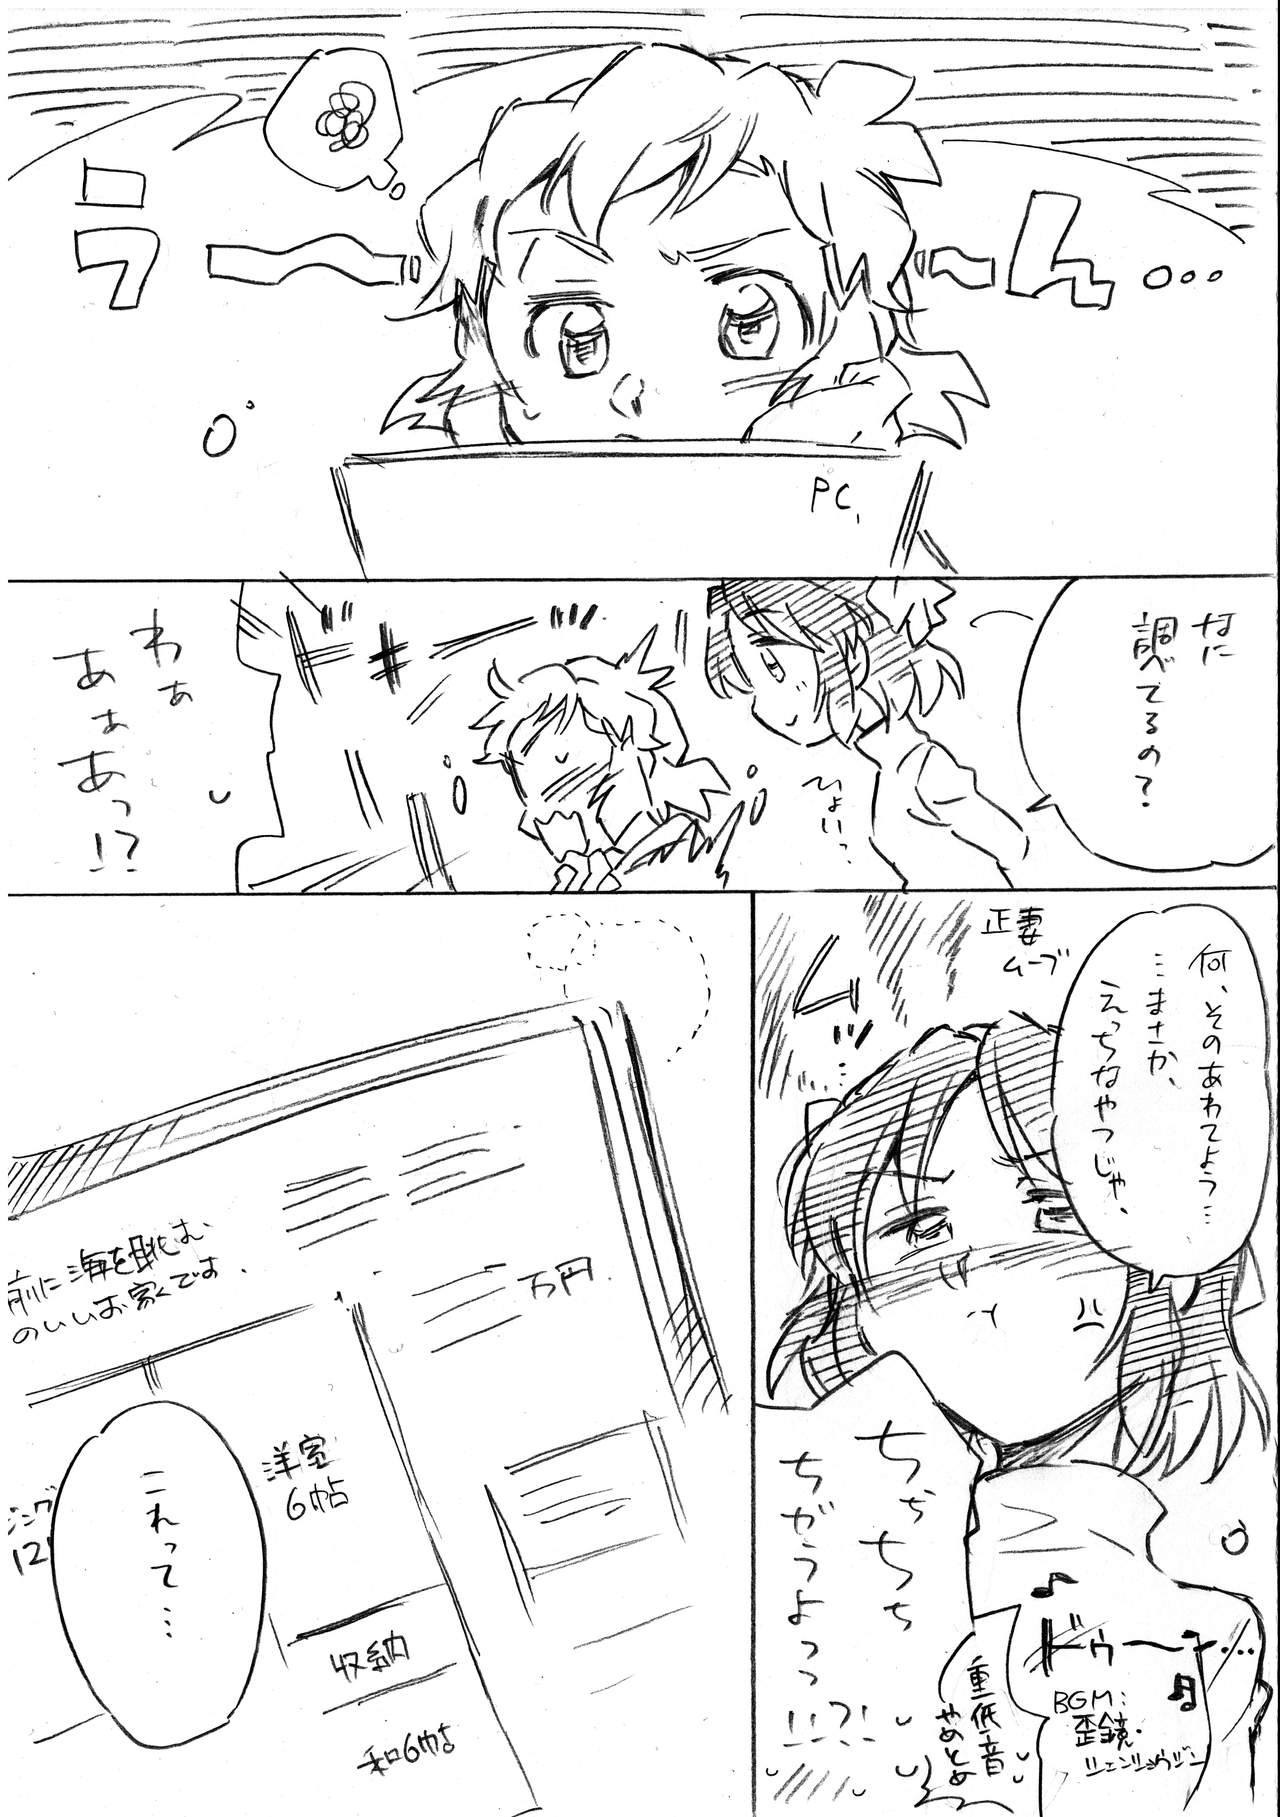 う〜〜ん…
PC
なに
調べてるの?
ひょいっ
わぁ
あぁぁあっ!?
何、そのあわてよう…
…まさか、
えっちなやつじゃ、
正妻
ムーブ
ムッ…
ちちちち
ちがうよっっ
!!?!
ドゥーーン…
BGM:
歪鏡・
シェンショウジン
重低音
やめとめ
前に海を眺む
のいいお家です.
万円.
洋室
6帖
12
収納
和6帖
これって…